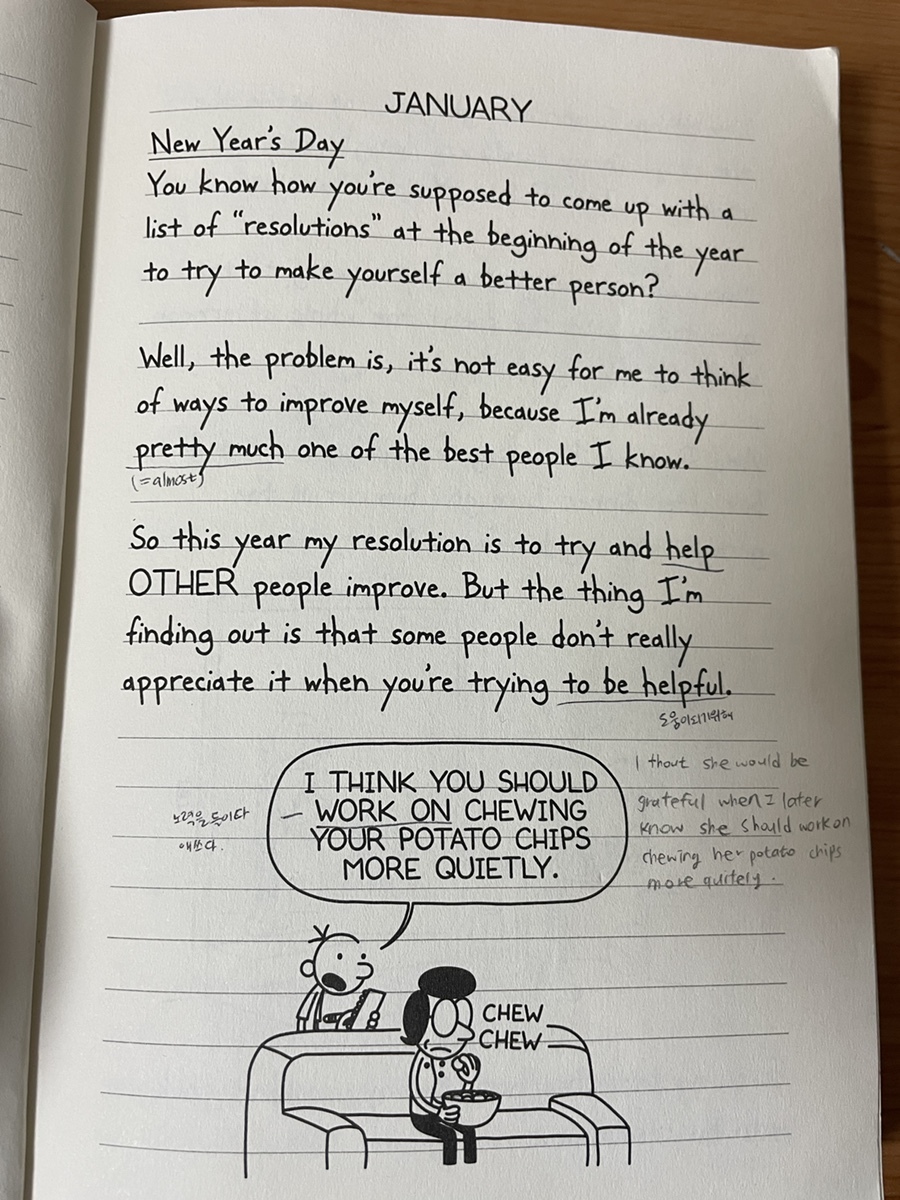 JANUARY
New Year's Day
You know how you're supposed to come up with a
list of "resolutions" at the beginning of the year
to try to make yourself a better person?
Well, the problem is, it's not easy for me to think
of ways to improve myself, because I'm already
pretty much one of the best people I know.
(=almost)
So this year my resolution is to try and help
OTHER people improve. But the thing I'm
finding out is that some people don't really
appreciate it when you're trying to be helpful.
도움이되기위해
I THINK YOU SHOULD
WORK ON CHEWING
YOUR POTATO CHIPS
MORE QUIETLY.
노력을 들이다
애쓰다.
I thout she would be
grateful when I later
know she should work on
chewing her potato chips
more quitely.
CHEW
CHEW